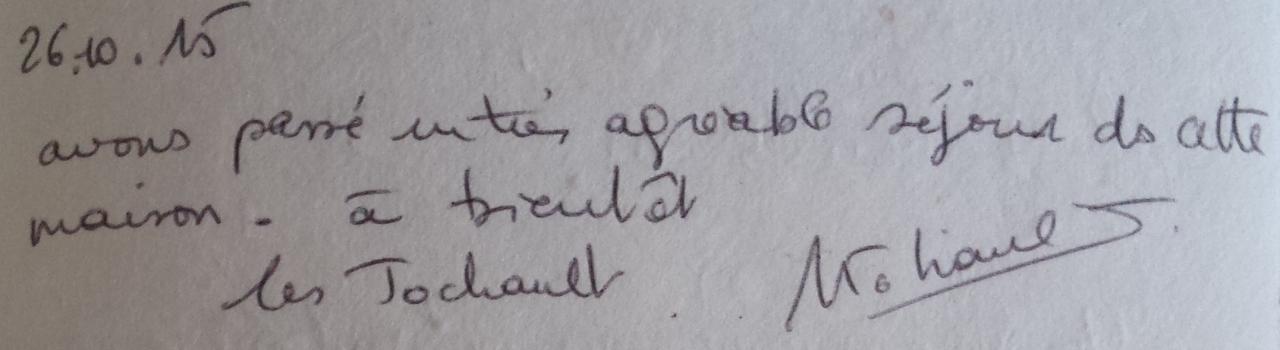 26.10.15
avons passé un très agréable séjour ds cette
maison - à bientôt
les Tochault